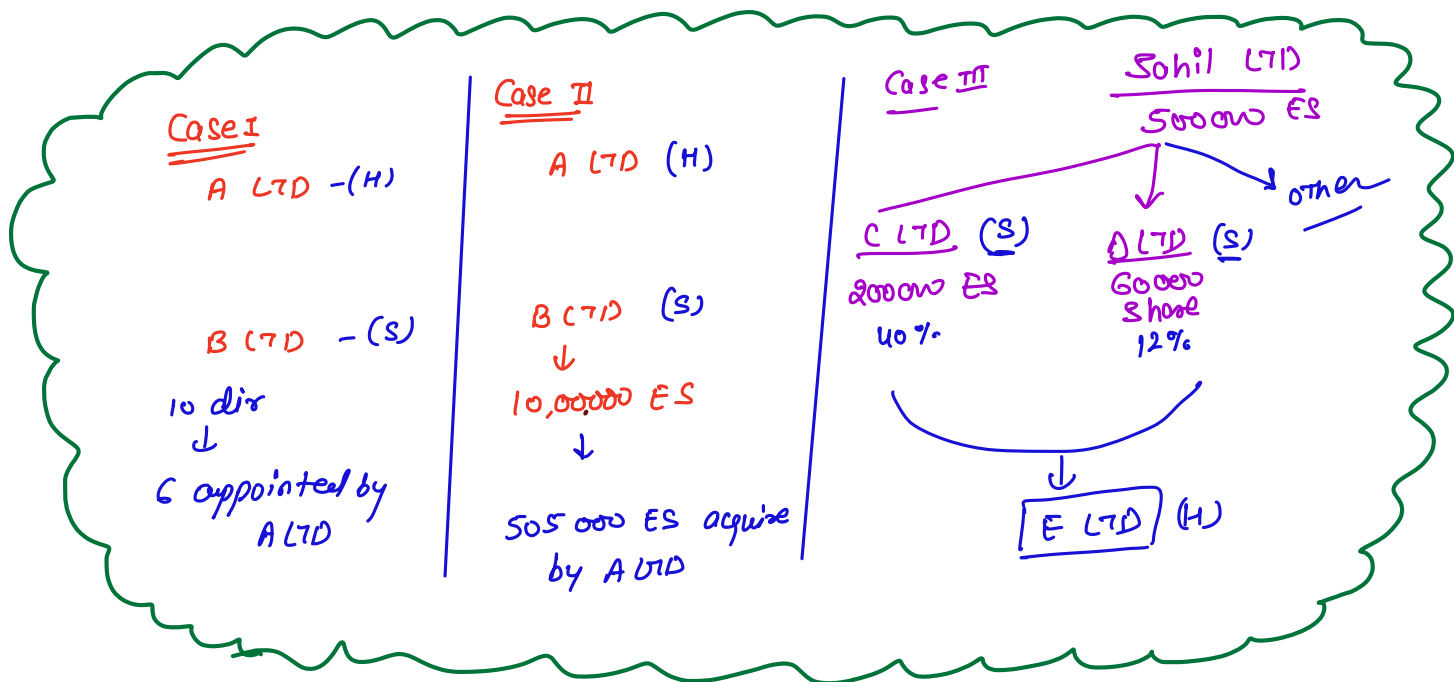 Case I
A LTD - (H)
B LTD - (S)
10 dir
6 appointed by
A LTD
Case II
A LTD (H)
B LTD (S)
10,00,000 ES
505000 ES acquire
by A LTD
Case III
Sohil LTD
500000 ES
other
C LTD (S)
200000 ES
40%
D LTD (S)
60000
Share
12%
E LTD (H)